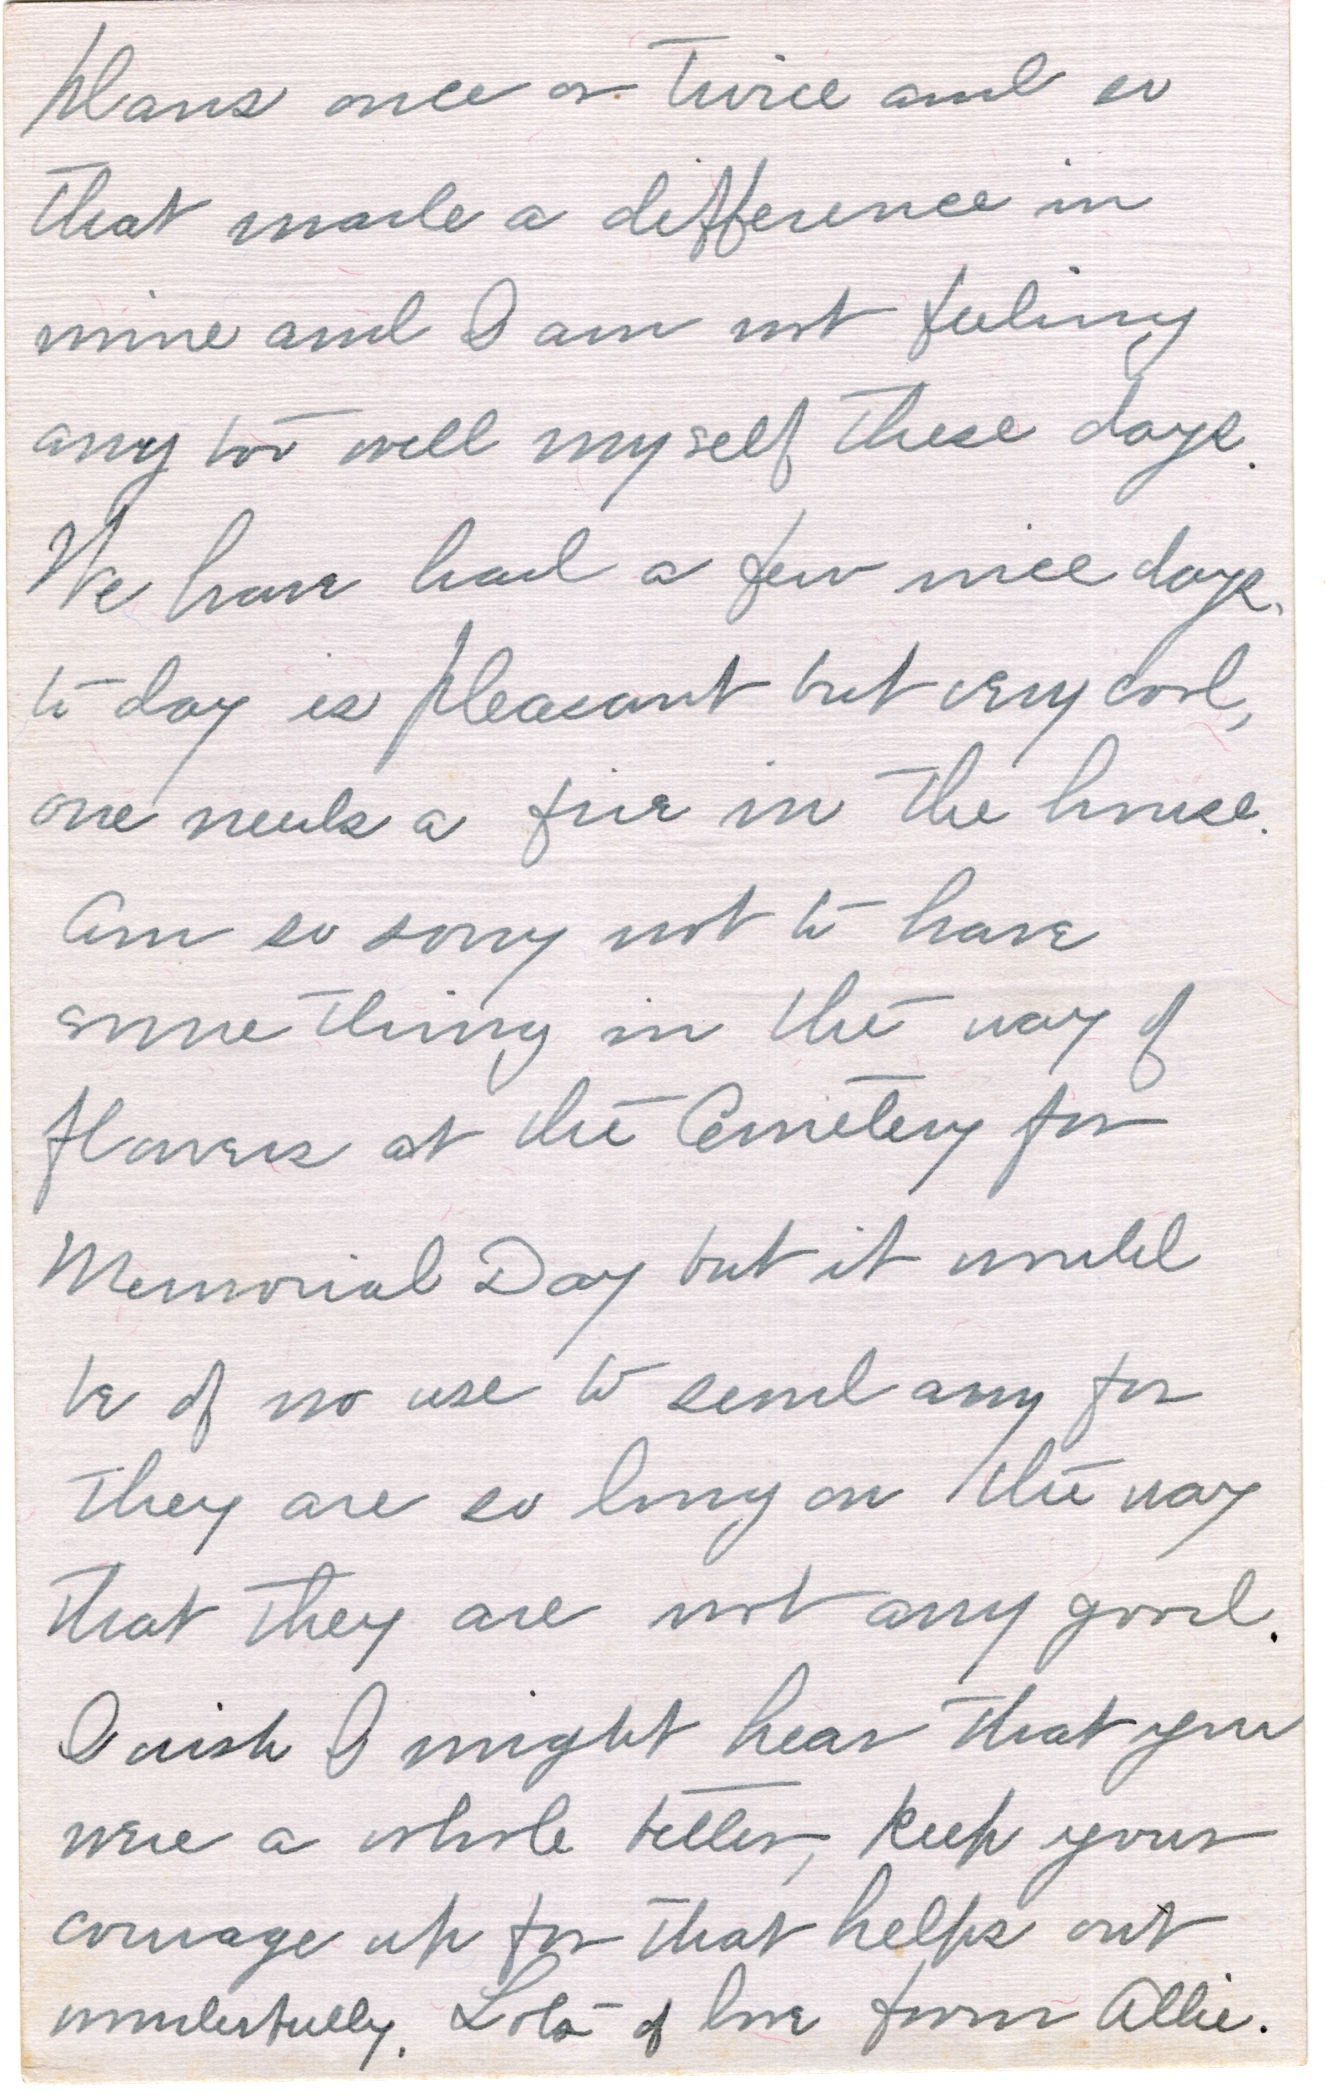 plans once or twice and so
that made a difference in
mine and I am not feeling
any too well myself these days.
We have had a few nice days.
to day is pleasant but very cool,
one needs a fire in the house.
Am so sorry not to have
some thing in the way of
flowers at the Cemetery for
Memorial Day but it would
be of no use to send any for
they are so long on the way
that they are not any good.
I wish I might hear that you
were a whole better, keep your
courage up for that helps out
wonderfully. Lots of love from Allie.